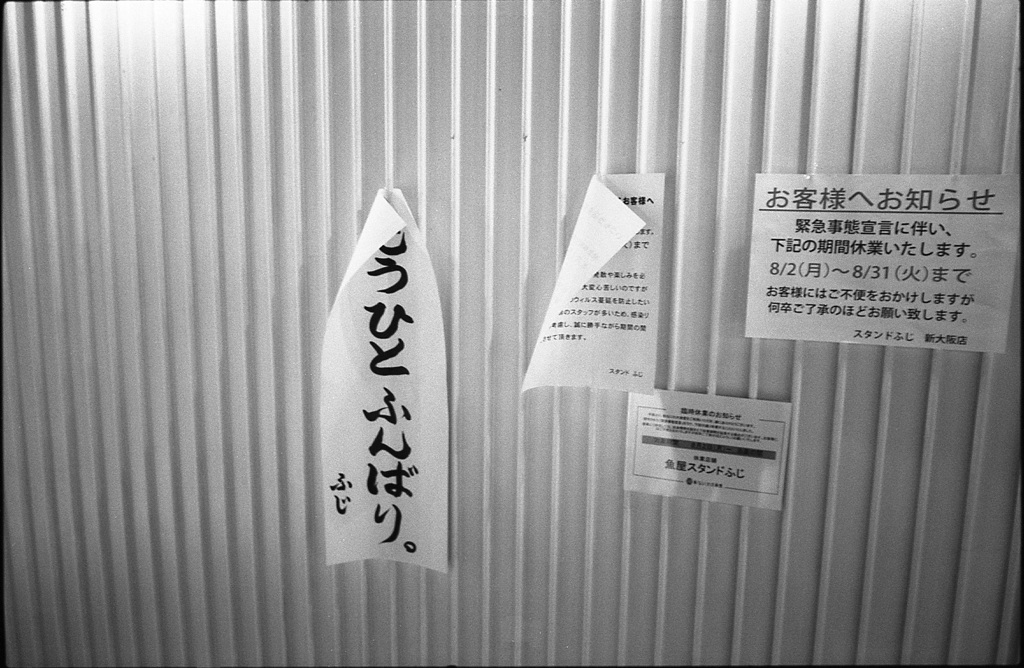 もうひとふんばり。
ふじ
お客様へ
ます。
)まで
発散や楽しみを必
大変心苦しいのですが
ウィルス蔓延を防止したい
のスタッフが多いため、感染り
慮し、誠に勝手ながら期間の間
させて頂きます。
スタンド ふじ
臨時休業のお知らせ
休業店舗
魚屋スタンドふじ
お客様へお知らせ
緊急事態宣言に伴い、
下記の期間休業いたします。
8/2(月)～8/31(火)まで
お客様にはご不便をおかけしますが
何卒ご了承のほどお願い致します。
スタンドふじ 新大阪店